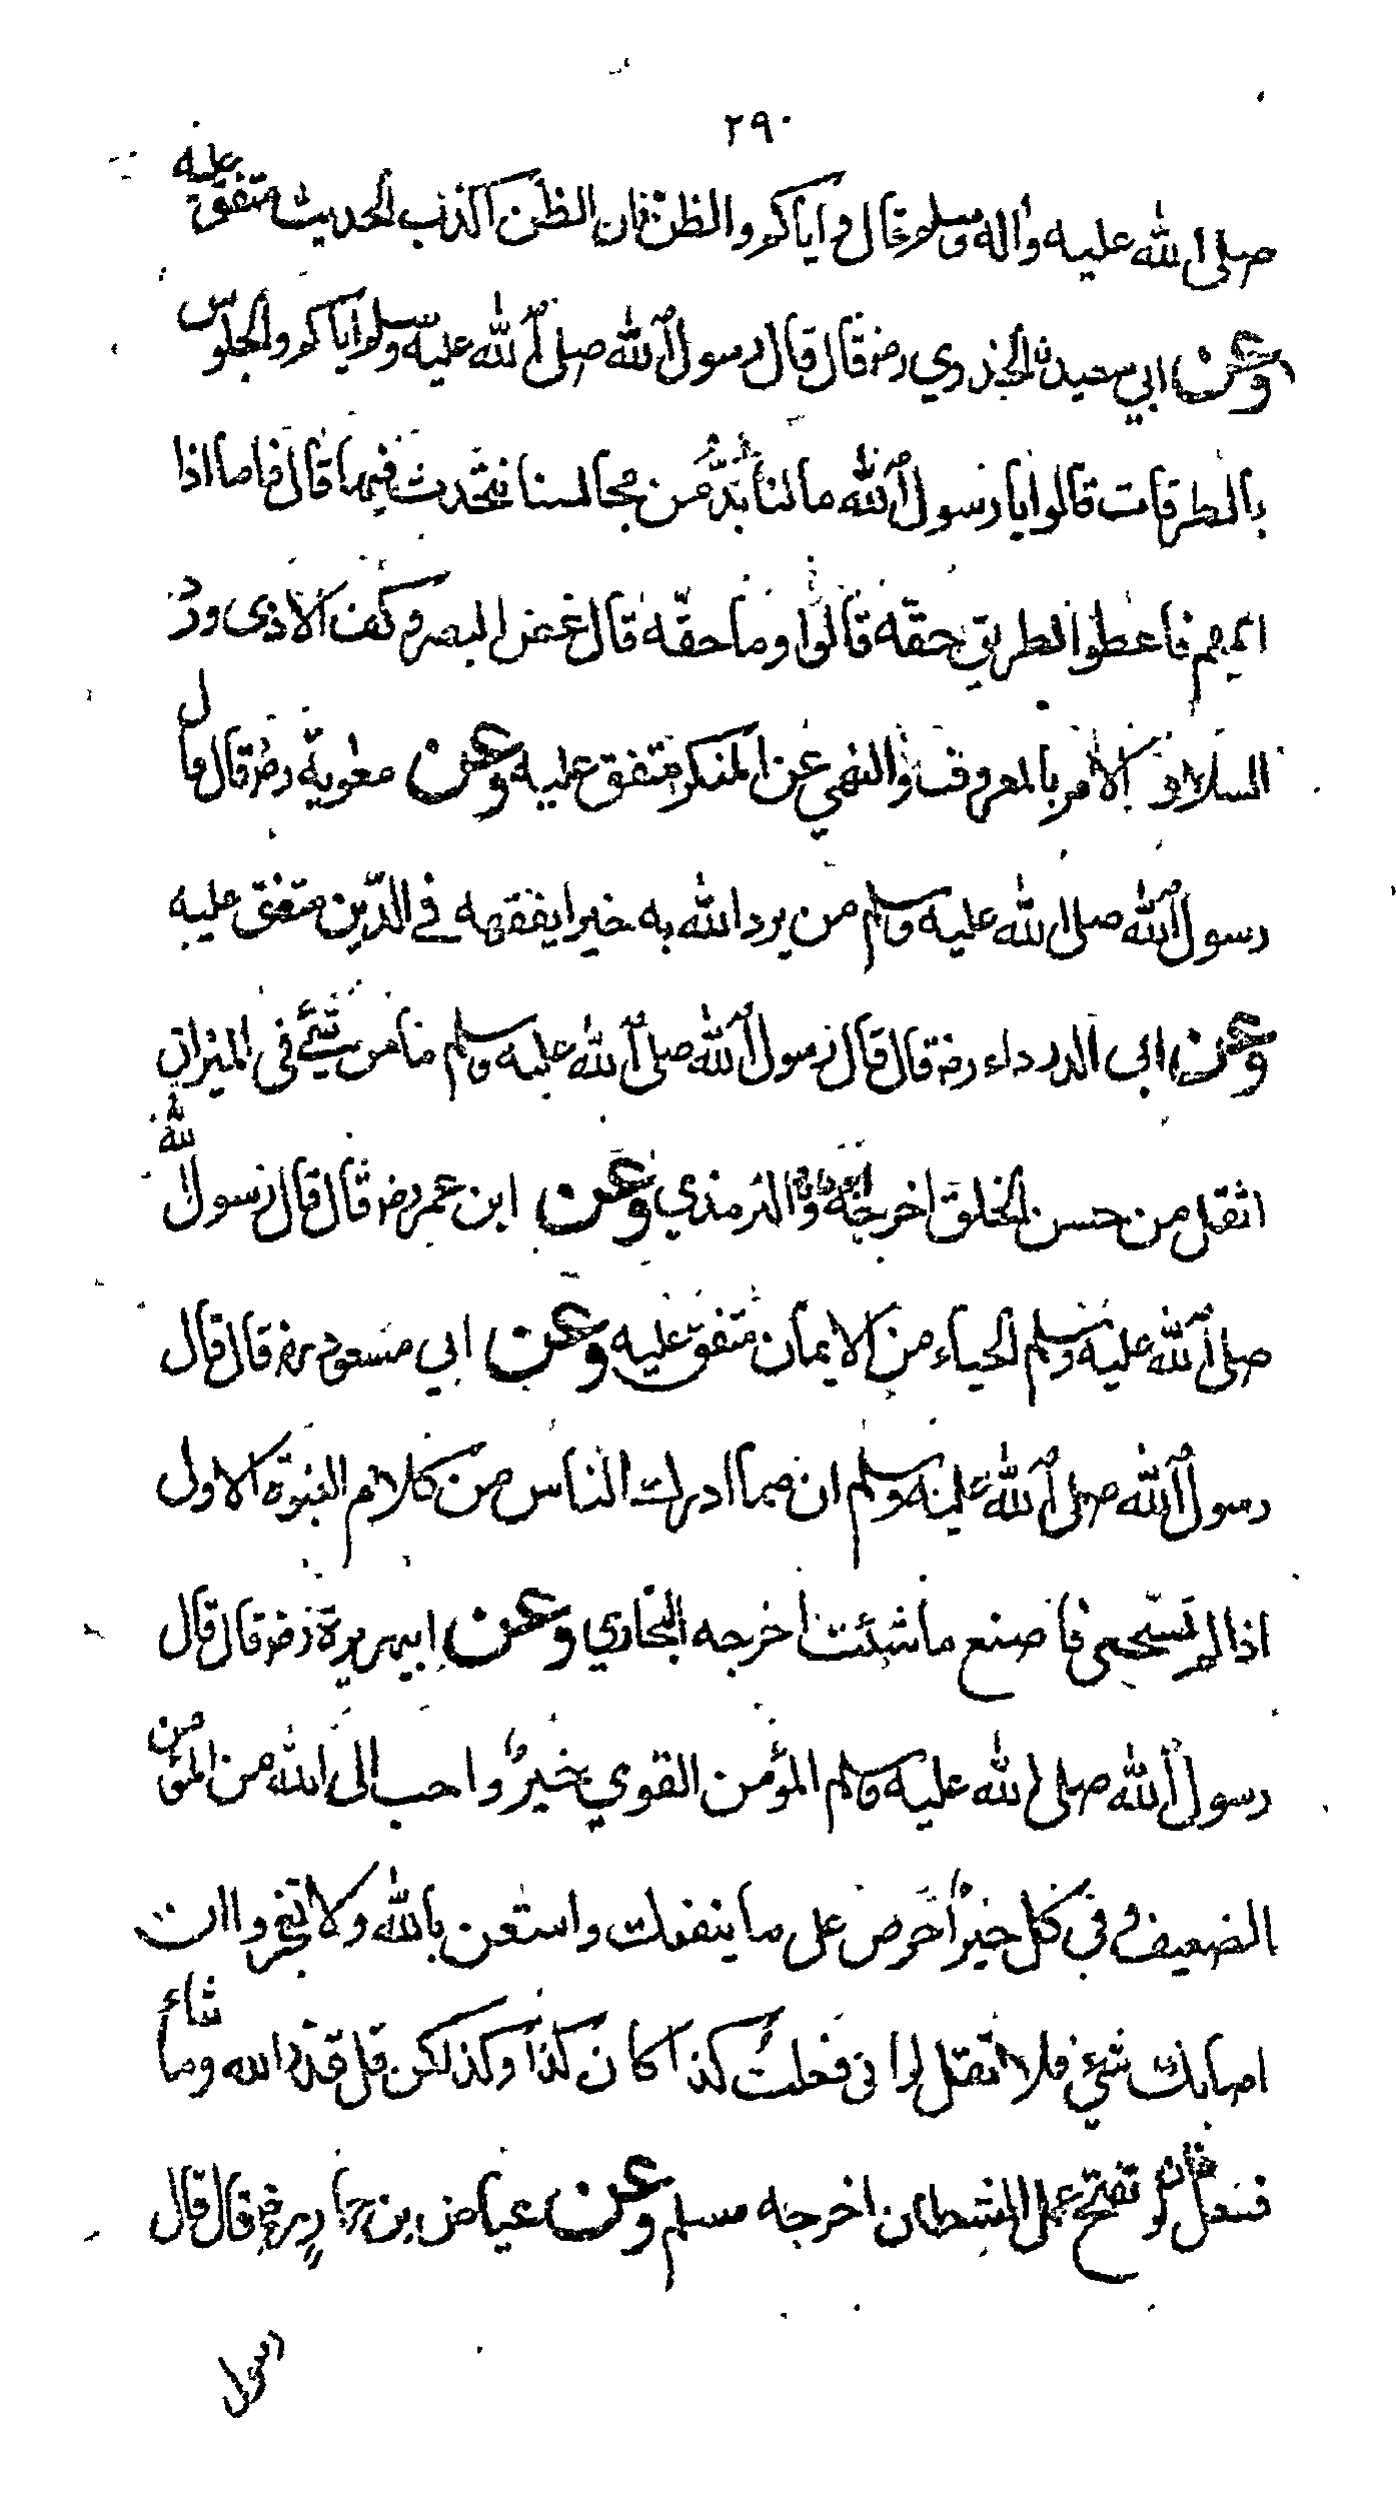 ٢٩٠
صلى الله عليه واله وسلم قال و اياكم والظن فان الظن اكذب الحديث متفق عليه
وعن ابي سعيدن الخدري رضه قال قال رسول الله صلى الله عليه وسلم اياكم والجلوس
بالطرقات قالوا يا رسول الله ما لنا بُدٌّ من مجالسنا نتحدث فيها قال فاما اذا
ابيتم فاعطوا الطريق حقّه قالوا وما حقّه قال غض البصر وكف الاذى وردّ
السلام والامر بالمعروف والنهي عن المنكر متفق عليه وعن معوية رضه قال قال
رسول الله صلى الله عليه وسلم من يرد الله به خيرا يفقهه في الدّين متفق عليه
وعن ابى الدرداء رضه قال قال رسول الله صلى الله عليه وسلم ما من شئ في الميزان
اثقل من حسن الخلق اخرجه والترمذي وعن ابن عمر رضه قال قال رسول الله
صلى الله عليه وسلم الحياء من الايمان متفق عليه وعن ابي مسعود رضه قال قال
رسول الله صلى الله عليه وسلم ان مما ادرك الناس من كلام النبوّة الاولى
اذا لم تستحى فاصنع ما شئت اخرجه البخاري وعن ابيهريرة رضه قال قال
رسول الله صلى الله عليه وسلم المؤمن القوي خيرٌ واحب الى الله من المؤمن
الضعيف و في كل خيرٌ احرص على ما ينفعك واستعن بالله ولا تعجز وان
اصابك شئ فلا تقل لو انى فعلت كذا كان كذا وكذا لكن قل قدّر الله وما شاء
فعل فان لو تفتح عمل الشيطان اخرجه مسلم وعن عياض بن حمارٍ رضه قال قال
رسول